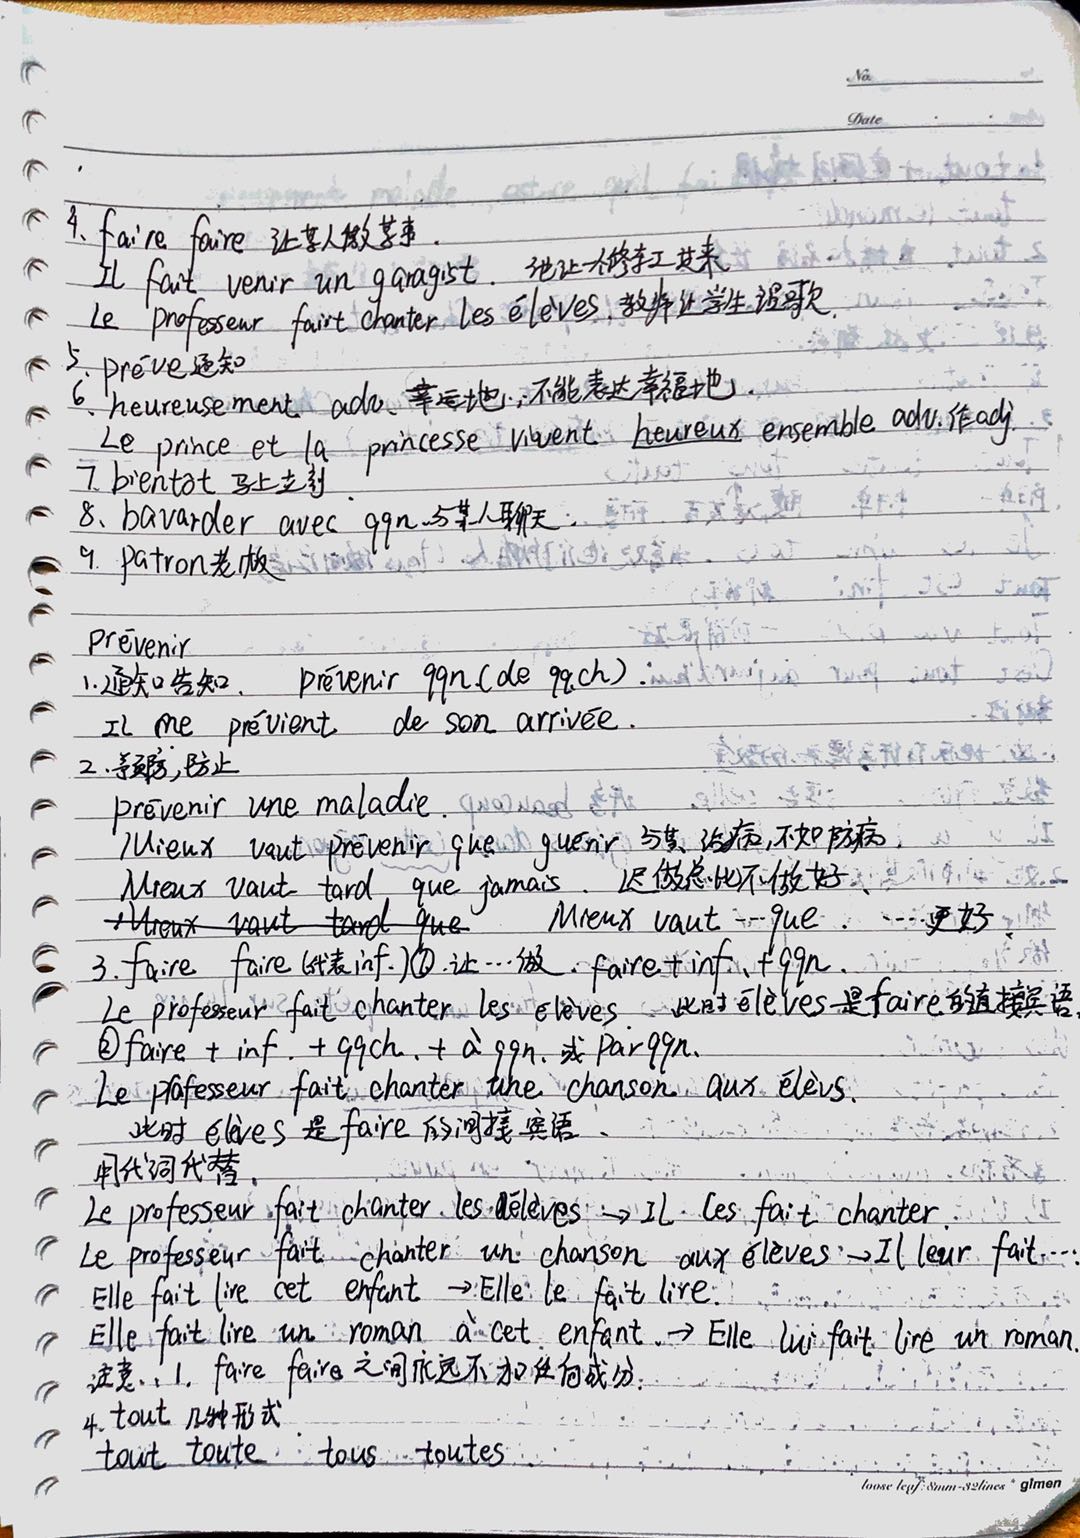 No.
Date
4. faire faire 让某人做某事.
Il fait venir un garagist. 他让一个修车工过来
Le professeur fairt chanter les élèves. 教师让学生唱歌.
5. préve通知
6. heureusement adv. 幸运地, 不能表达幸福地.
Le prince et la princesse vivent heureux ensemble adv.作adj.
7. bientot 马上立刻
8. bavarder avec qqn.与某人聊天.
9. patron老板
prévenir
1.通知告知. prévenir qqn(de qqch).
Il me prévient de son arrivée.
2.预防,防止
prévenir une maladie.
Mieux vaut prévenir que guérir 与其治病,不如防病.
Mieux vaut tard que jamais. 迟做总比不做好
Mieux vaut tard que Mieux vaut ... que. ...更好.
3. faire faire (代表inf.)① 让...做. faire+inf. +qqn.
Le professeur fait chanter les élèves 此时élèves是faire的直接宾语.
②faire + inf. + qqch. + à qqn. 或 par qqn.
Le pfafesseur fait chanter une chanson aux élèvs.
此时 élèves 是faire的间接宾语.
用代词代替.
Le professeur fait chanter les élèves → Il les fait chanter.
Le professeur fait chanter un chanson aux élèves → Il leur fait...
Elle fait lire cet enfant → Elle le fait lire.
Elle fait lire un roman à cet enfant. → Elle lui fait lire un roman.
注意. 1. faire faire 之间永远不加任何成分.
4. tout 几种形式
tout toute tous toutes
loose leaf: 8mm-32lines * gimen